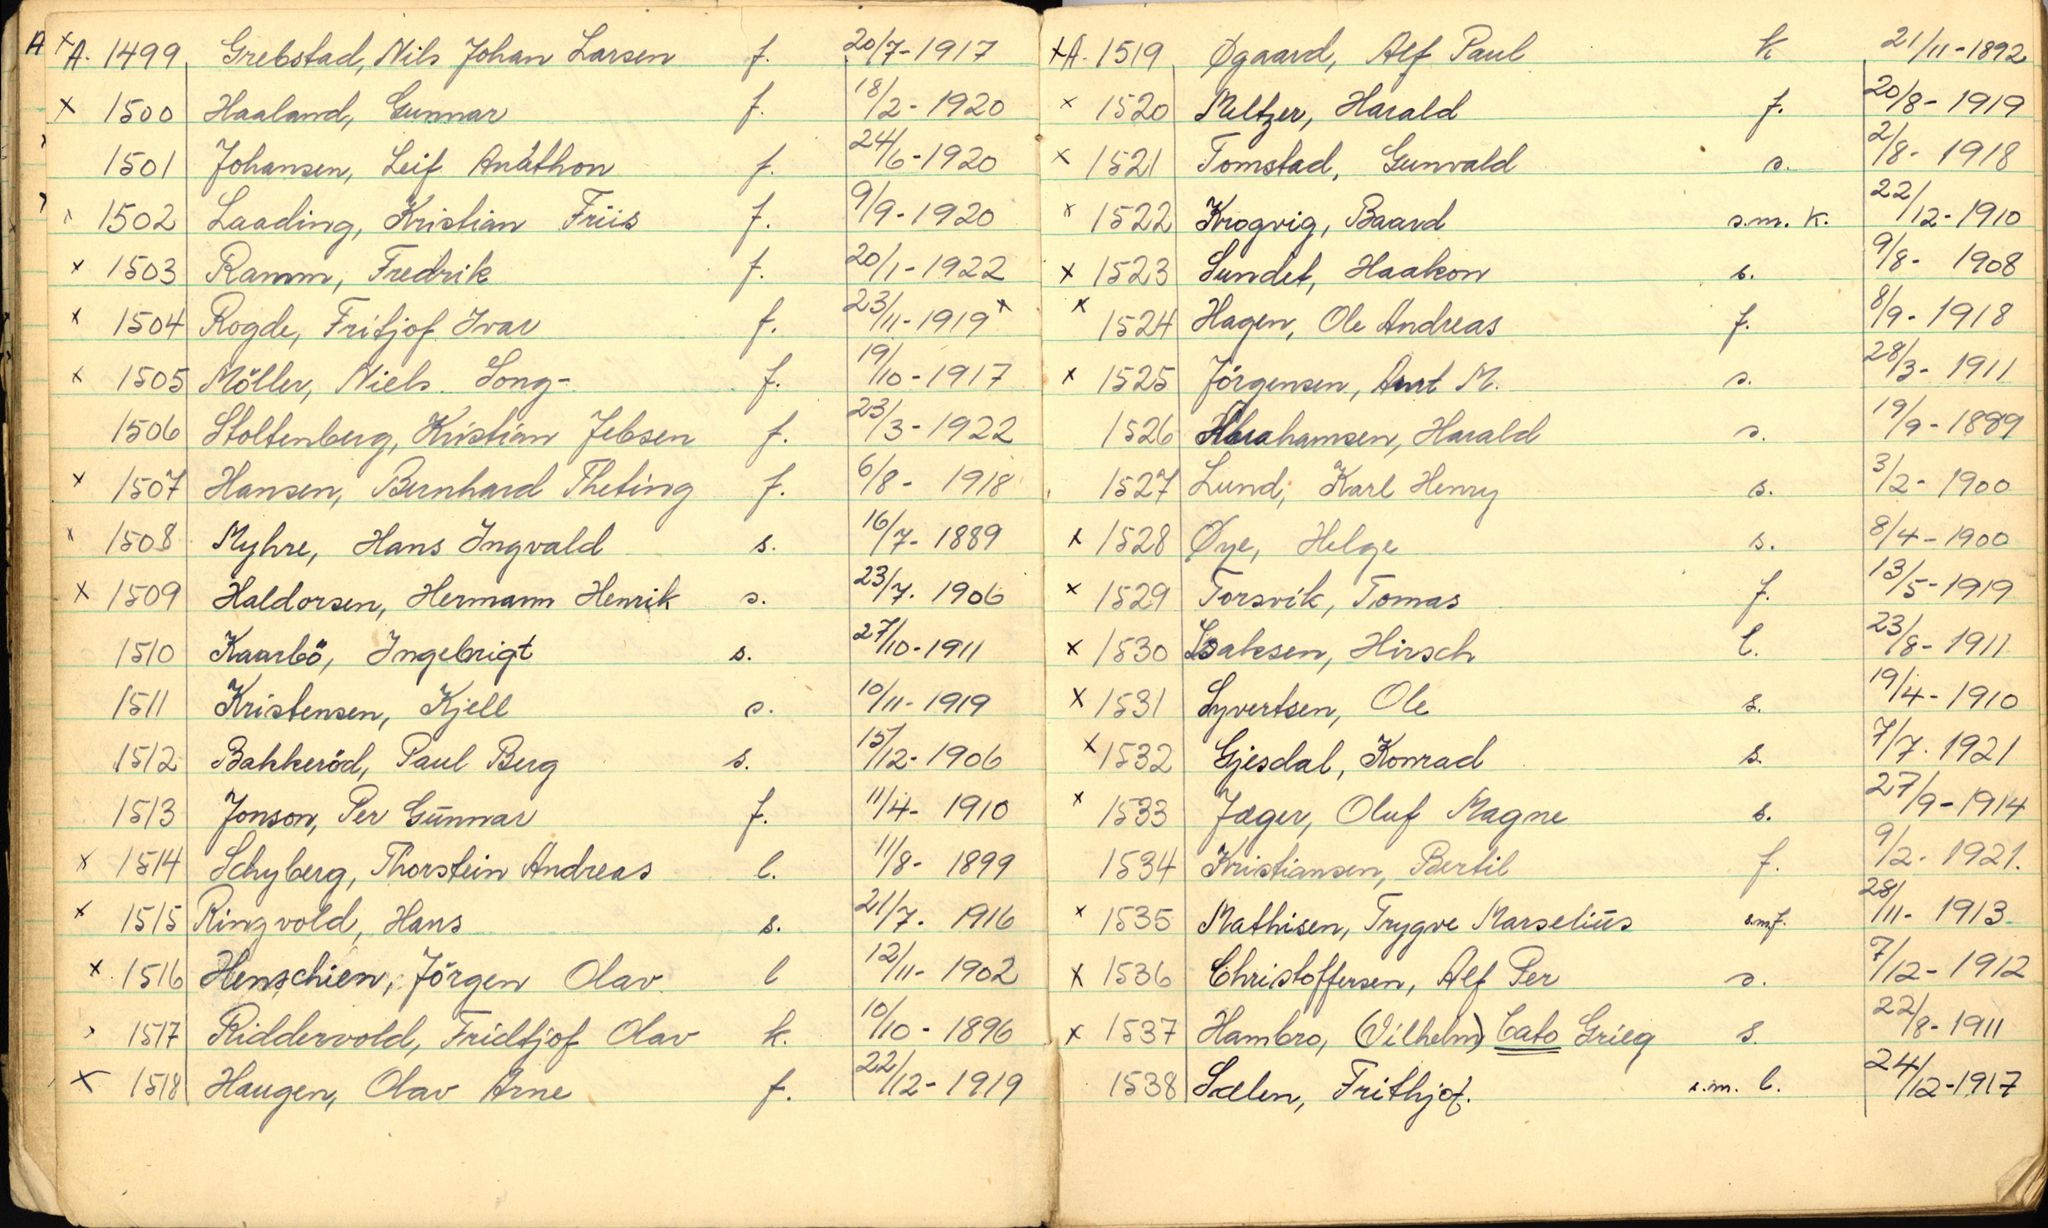 A × A. 1499 Grebstad, Nils Johan Larsen f. 20/7-1917
× 1500 Haaland, Gunnar f. 18/2-1920
1501 Johansen, Leif Anáthon f. 24/6-1920
1502 Laading, Kristian Friis f. 9/9-1920
× 1503 Ramm, Fredrik f. 20/1-1922
× 1504 Rogde, Fritjof Ivar f. 23/11-1919 ×
× 1505 Möller, Niels Song- f. 19/10-1917
1506 Stoltenberg, Kristian Jebsen f. 23/3-1922
× 1507 Hansen, Bernhard Theting f. 6/8- 1918
× 1508 Myhre, Hans Ingvald s. 16/7- 1889
× 1509 Haldorsen, Hermann Henrik s. 23/7. 1906
1510 Kaarbö, Ingebrigt s. 27/10-1911
1511 Kristensen, Kjell s. 10/11-1919
1512 Bakkeröd, Paul Berg s. 15/12-1906
1513 Jonson, Per Gunnar f. 11/4- 1910
× 1514 Schyberg, Thorstein Andreas l. 11/8- 1899
× 1515 Ringvold, Hans s. 21/7. 1916
× 1516 Henschien, Jörgen Olav l 12/11- 1902
1517 Riddervold, Fridtjof Olav k. 10/10- 1896
× 1518 Haugen, Olav Arne f. 22/12-1919
×A. 1519 Øgaard, Alf Paul k 21/11-1892
× 1520 Meltzer, Harald f. 20/8- 1919
× 1521 Tomstad, Gunvald s. 2/8- 1918
× 1522 Krogvig, Baard s.m. K. 22/12-1910
× 1523 Sundet, Haakon s. 9/8- 1908
× 1524 Hagen, Ole Andreas f. 8/9- 1918
× 1525 Jörgensen, Arnt M. s. 28/3- 1911
1526 Abrahamsen, Harald s. 19/9-1889
1527 Lund, Karl Henry s. 3/2-1900
× 1528 Øye, Helge s. 8/4-1900
× 1529 Torsvik, Tomas f. 13/5-1919
× 1530 Isaksen, Hirsch l. 23/8-1911
× 1531 Syvertsen, Ole s. 19/4-1910
× 1532 Gjesdal, Konrad s. 7/7. 1921
× 1533 Jæger, Oluf Magne s. 27/9-1914
1534 Kristiansen, Bertil f. 9/2- 1921.
× 1535 Mathisen, Trygve Marselius s.m.f. 28/11- 1913
× 1536 Christoffersen, Alf Per s. 7/12-1912
× 1537 Hambro, (Vilhelm) Cato Grieg s. 22/8-1911
1538 Sælen, Frithjof. s.m. l. 24/12-1917